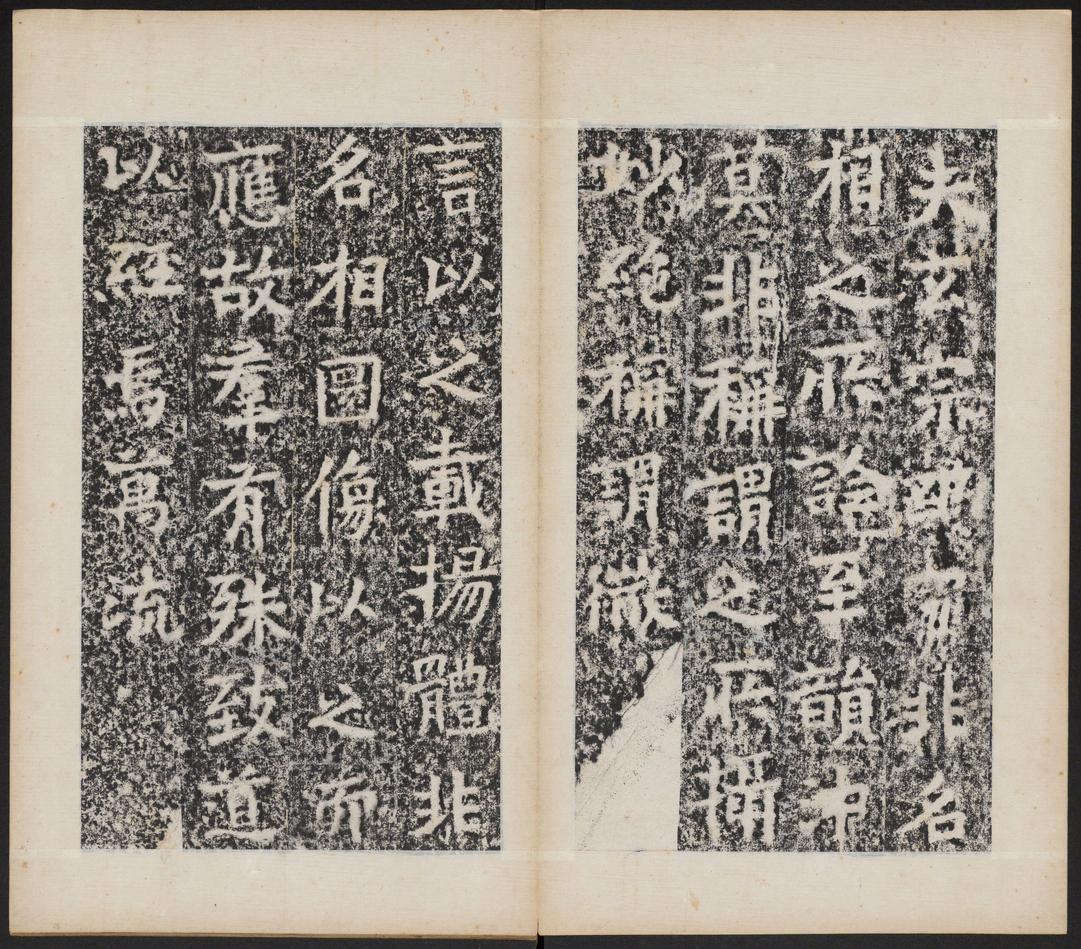 夫玄宗幽寂非名
相之所詮至韻沖
莫非稱謂之所攝
妙絕稱謂微
言以之載揚體非
名相圖像以之而
應故羣有殊致道
以經焉萬流